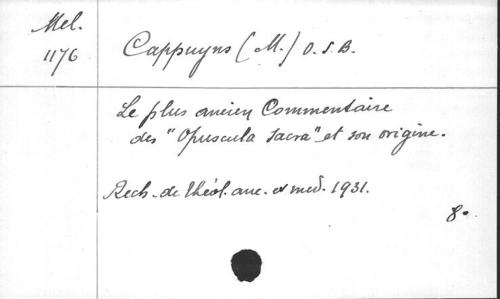 Mel.
1176
Cappuyns (M.) O.S.B.
Le plus ancien Commentaire
des "Opuscula Sacra" et son origine.
Rech. de théol. anc. et med. 1931.
8°